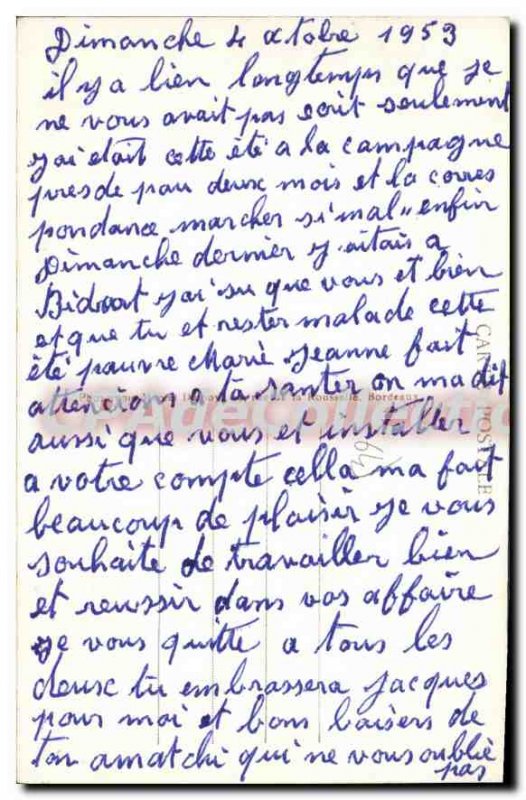 Dimanche 4 octobre 1953
il y a bien longtemps que je
ne vous avait pas ecrit seulement
j'ai etait cette été a la campagne
pres de pau deux mois et la corres
pondance marcher si mal enfin
Dimanche dernier j'aitais a
Bidart j'ai su que vous et bien
et que tu et rester malade cette
été pauvre Marie Jeanne fait
attencions a ta santer on ma dit
aussi que vous et installer
a votre compte cella ma fait
beaucoup de plaisir je vous
souhaite de travailler bien
et reussir dans vos affaire
je vous quitte a tous les
deux tu embrassera Jacques
pour moi et bons baisers de
ton amatchi qui ne vous oublie
pas
CARTE POSTALE
Rousselle, Bordeaux